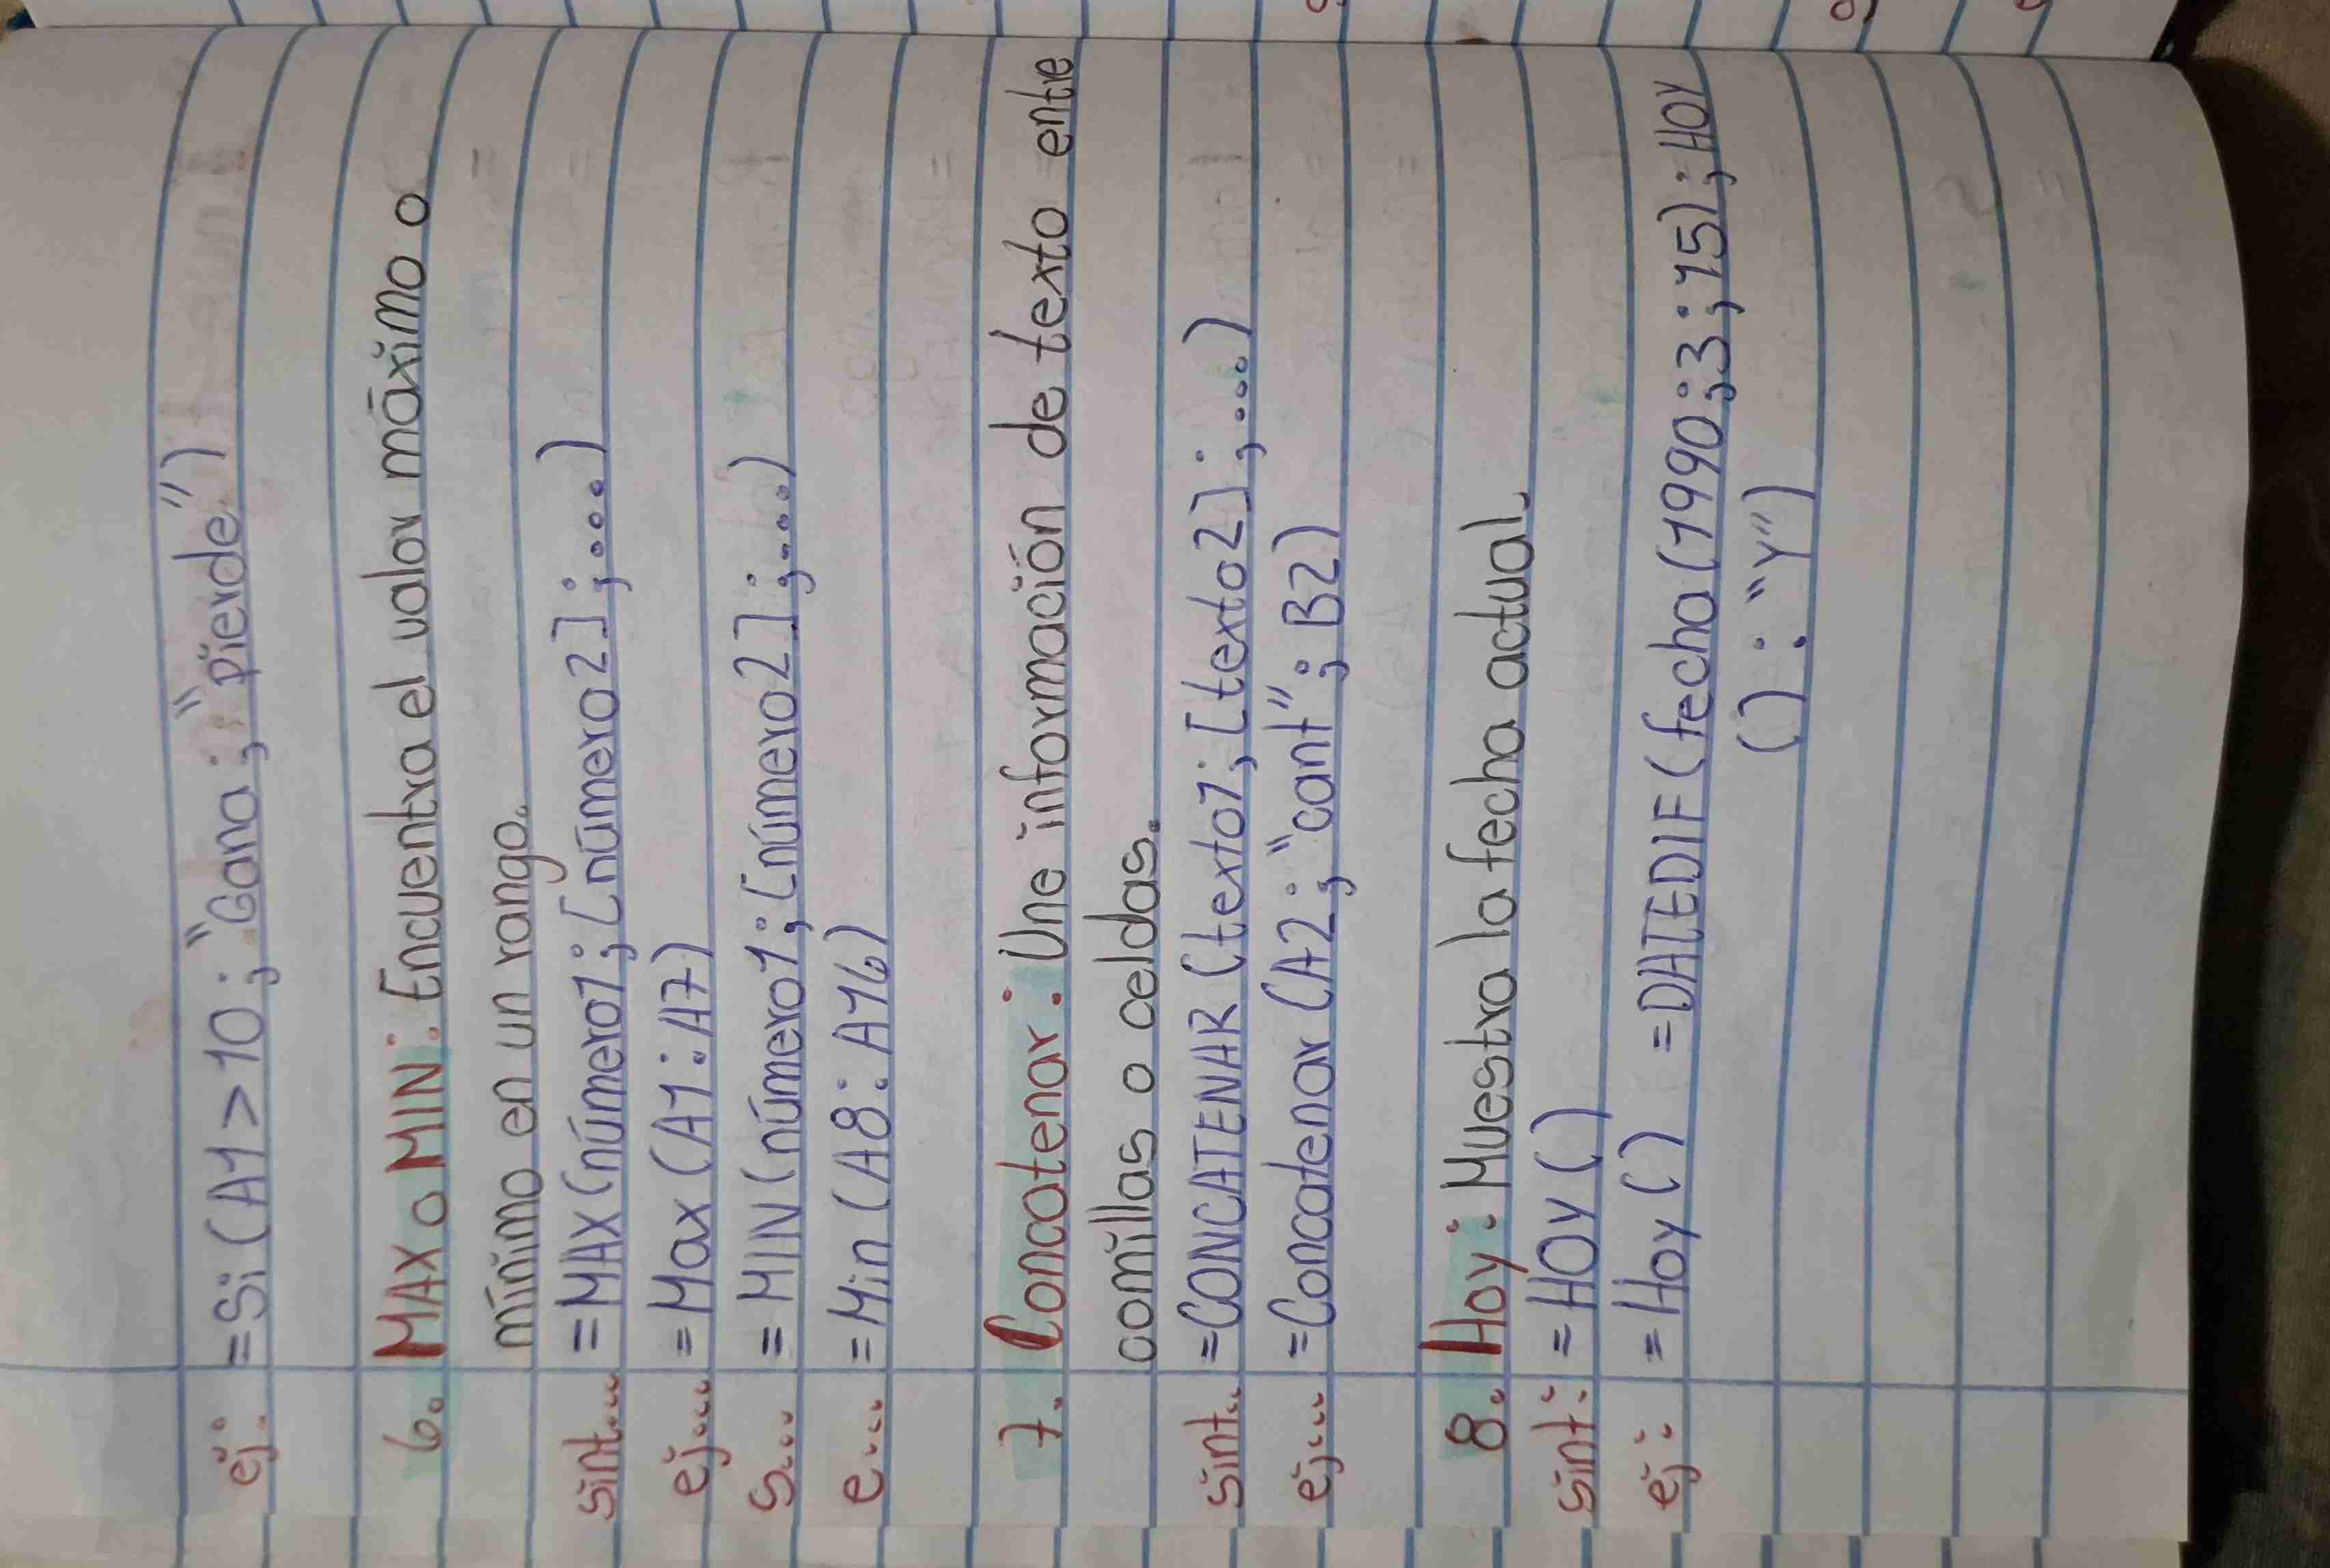 ej: =Si(A1>10;"Gana;"pierde")
6. MAX o MIN: Encuentra el valor máximo o
mínimo en un rango.
sint... =MAX(número1;[número2];...)
ej... =Max(A1:A7)
s... =MIN(número1;[número2];...)
e... =Min(A8:A16)
7. Concatenar: Une información de texto entre
comillas o celdas.
sint.. =CONCATENAR(texto1;[texto2];...)
ej... =Concatenar(A2;"cant";B2)
8. Hoy: Muestra la fecha actual.
sint: =HOY()
ej: =Hoy() =DATEDIF(fecha(1990;3;15);HOY
():"Y")